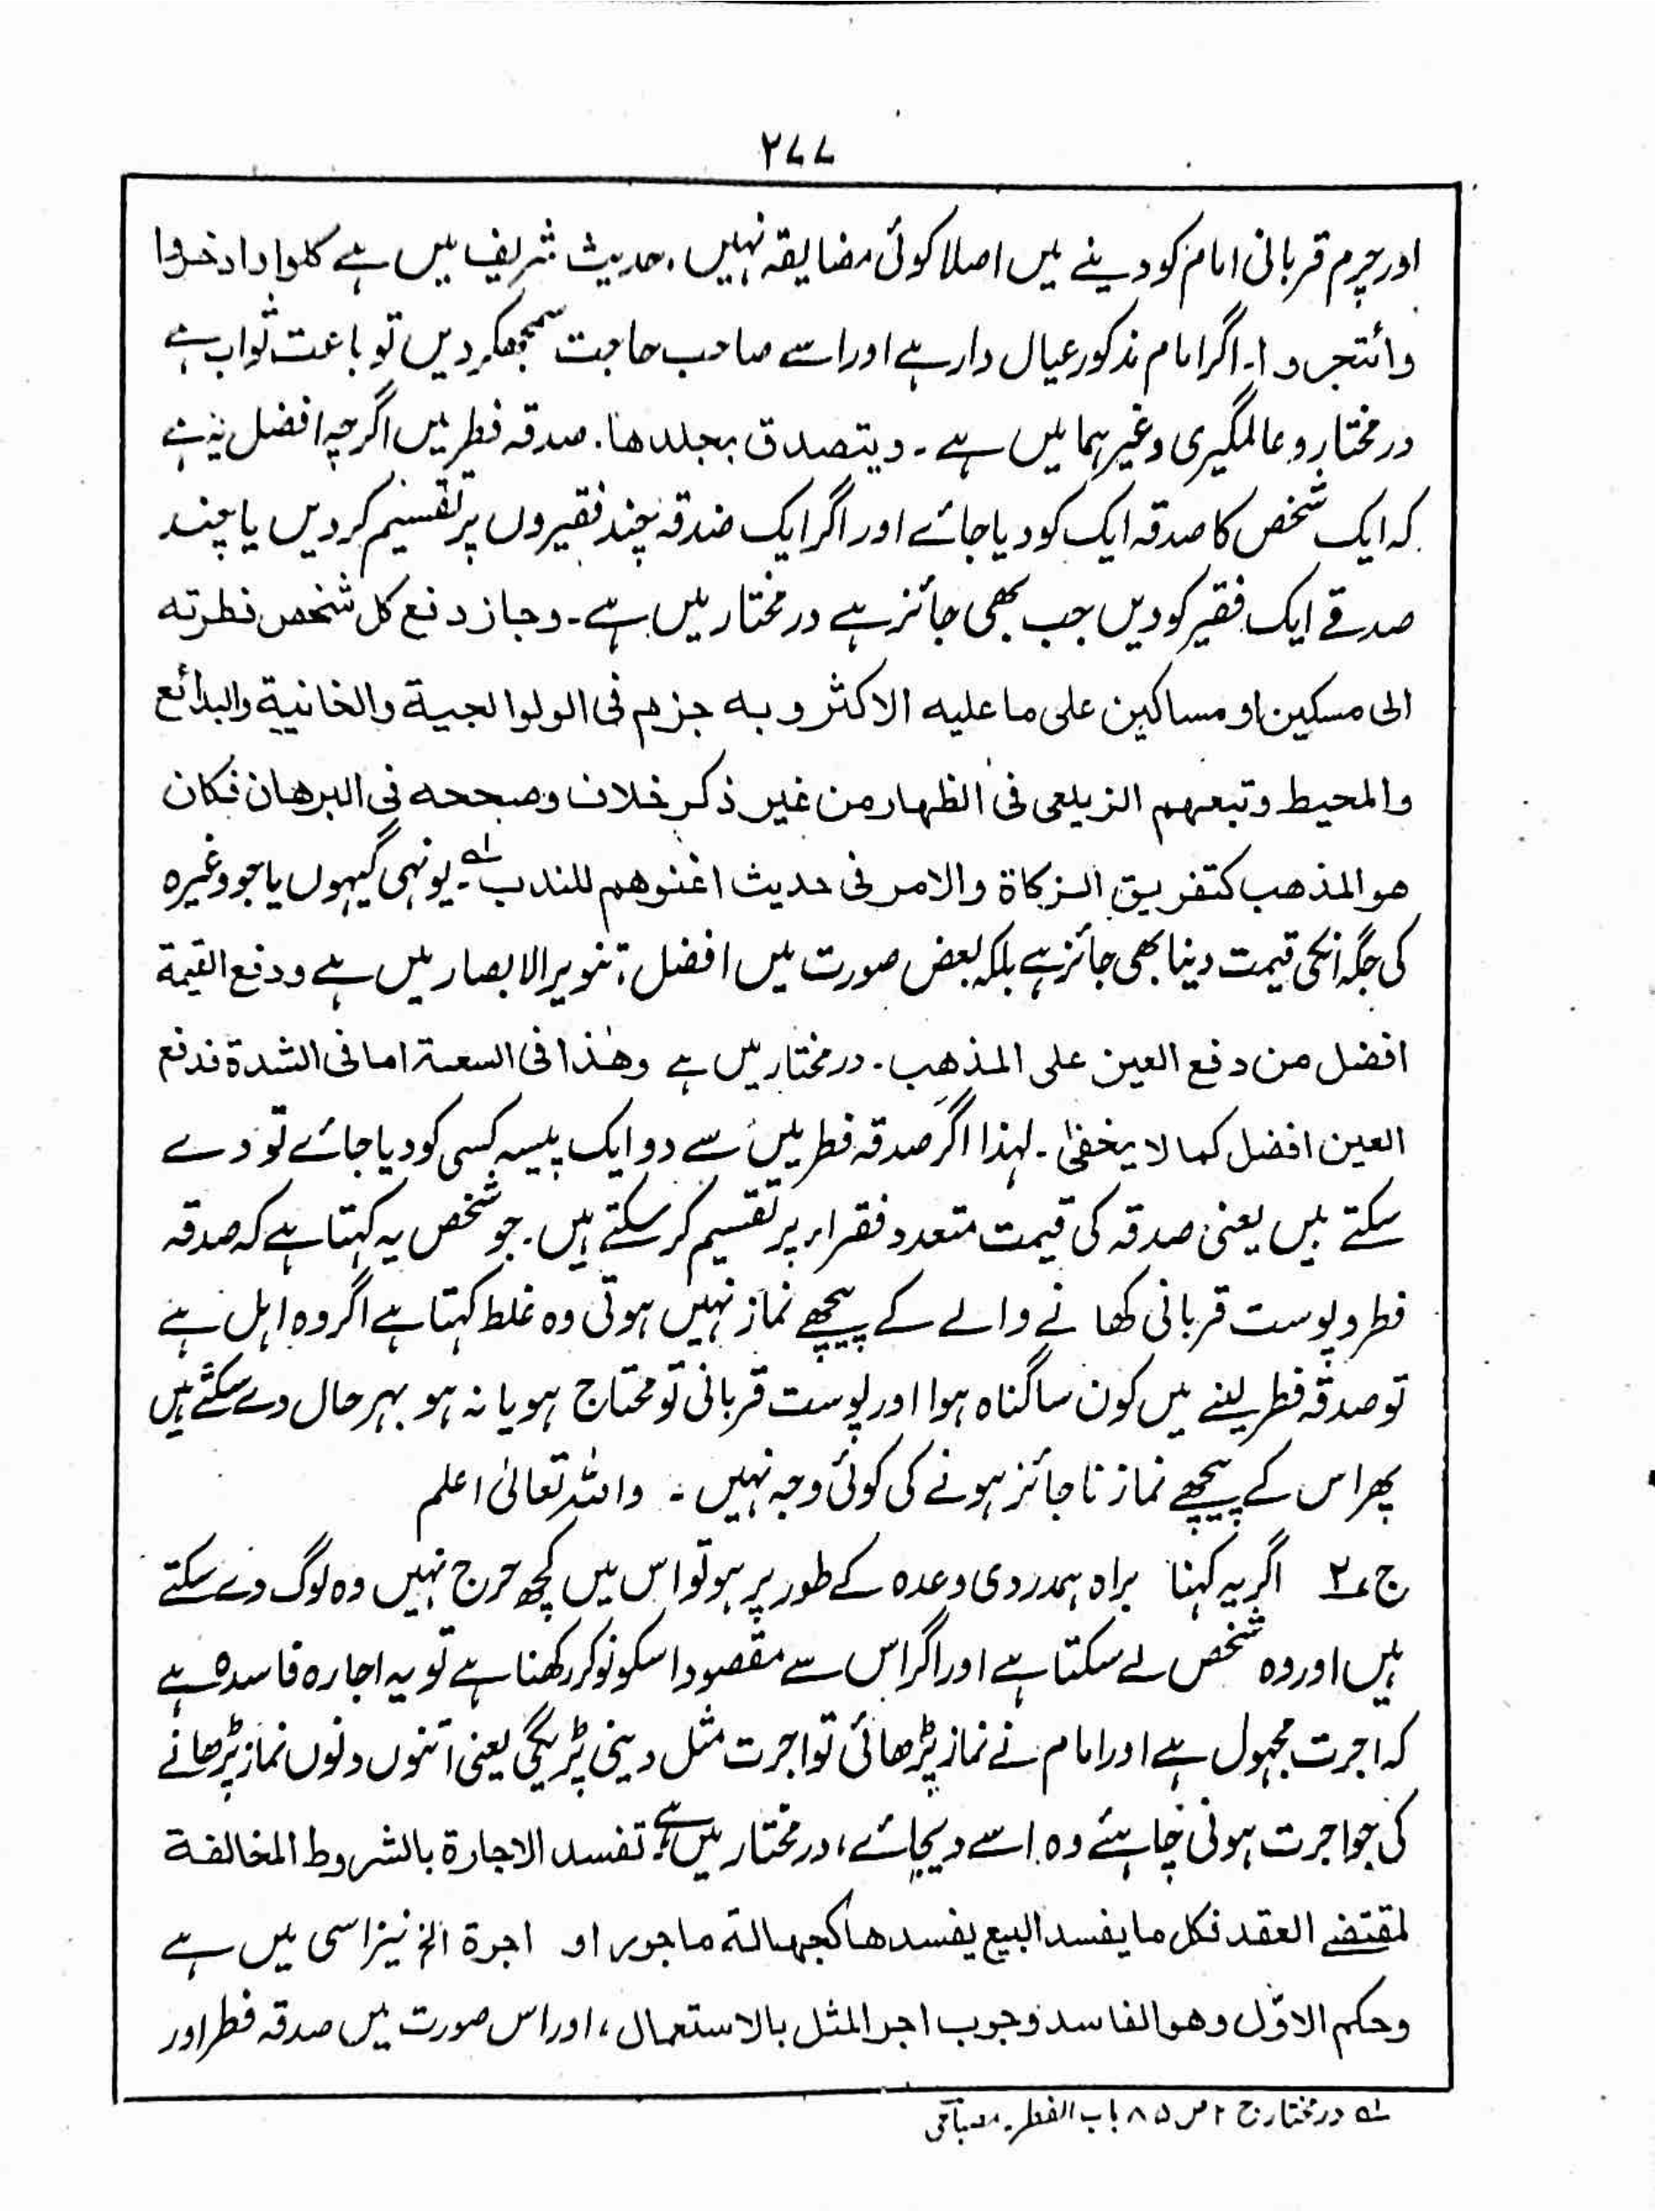 ۲۷۷
اور چرم قربانی امام کو دینے میں اصلا کوئی مضایقہ نہیں، حدیث شریف میں ہے کلوا وادخروا
وائتجروا۔ اگر امام مذکور عیال دار ہے اور اسے صاحب حاجت سمجھکر دیں تو باعث ثواب ہے
درمختار و عالمگیری وغیرہما میں ہے۔ ویتصدق بجلدھا۔ صدقہ فطر میں اگرچہ افضل یہ ہے
کہ ایک شخص کا صدقہ ایک کو دیا جائے اور اگر ایک صدقہ چند فقیروں پر تقسیم کر دیں یا چند
صدقے ایک فقیر کو دیں جب بھی جائز ہے درمختار میں ہے۔ وجاز دفع کل شخص فطرتہ
الی مسکین او مساکین علی ما علیہ الاکثر وبہ جزم فی الولوالجیة والخانیة والبدائع
والمحیط وتبعہم الزیلعی فی الظہار من غیر ذکر خلاف وصححہ فی البرھان فکان
ھو المذھب کتفریق الزکاة والامر فی حدیث اغنوھم للندب لہ۔ یونہی گیہوں یا جو وغیرہ
کی جگہ انکی قیمت دینا بھی جائز ہے بلکہ بعض صورت میں افضل؛ تنویر الابصار میں ہے ودفع القیمة
افضل من دفع العین علی المذھب۔ درمختار میں ہے وھٰذا فی السعة اما فی الشدة فدفع
العین افضل کما لا یخفیٰ۔ لہذا اگر صدقہ فطر میں سے دو ایک پیسہ کسی کو دیا جائے تو دے
سکتے ہیں یعنی صدقہ کی قیمت متعدد فقراء پر تقسیم کر سکتے ہیں۔ جو شخص یہ کہتا ہے کہ صدقہ
فطر و پوست قربانی کھانے والے کے پیچھے نماز نہیں ہوتی وہ غلط کہتا ہے اگر وہ اہل ہے
تو صدقہ فطر لینے میں کون سا گناہ ہوا اور پوست قربانی تو محتاج ہو یا نہ ہو بہر حال دے سکتے ہیں
پھر اس کے پیچھے نماز ناجائز ہونے کی کوئی وجہ نہیں۔ واللہ تعالیٰ اعلم
ج ۲ اگر یہ کہنا براہ ہمدردی وعدہ کے طور پر ہو تو اس میں کچھ حرج نہیں وہ لوگ دے سکتے
ہیں اور وہ شخص لے سکتا ہے اور اگر اس سے مقصود اسکو نوکر رکھنا ہے تو یہ اجارہ فاسدہ ہے
کہ اجرت مجہول ہے اور امام نے نماز پڑھائی تو اجرت مثل دینی پڑیگی یعنی اتنوں دنوں نماز پڑھانے
کی جو اجرت ہونی چاہئے وہ اسے دیجائے، درمختار میں ہے تفسد الاجارة بالشروط المخالفة
لمقتضے العقد فکل ما یفسد البیع یفسدھا کجہالة ماجور او اجرة الخ نیز اسی میں ہے
وحکم الاوّل وھو الفاسد وجوب اجر المثل بالاستعمال، اور اس صورت میں صدقہ فطر اور
لہ درمختار ج ۲ ص ۸۵ باب الفطر۔